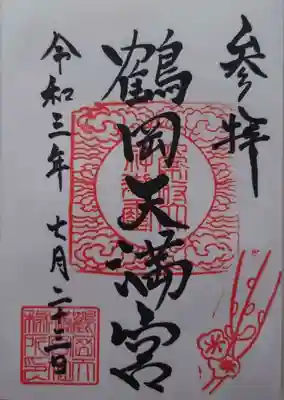 参拝
鶴岡天満宮
令和三年 七月二十三日